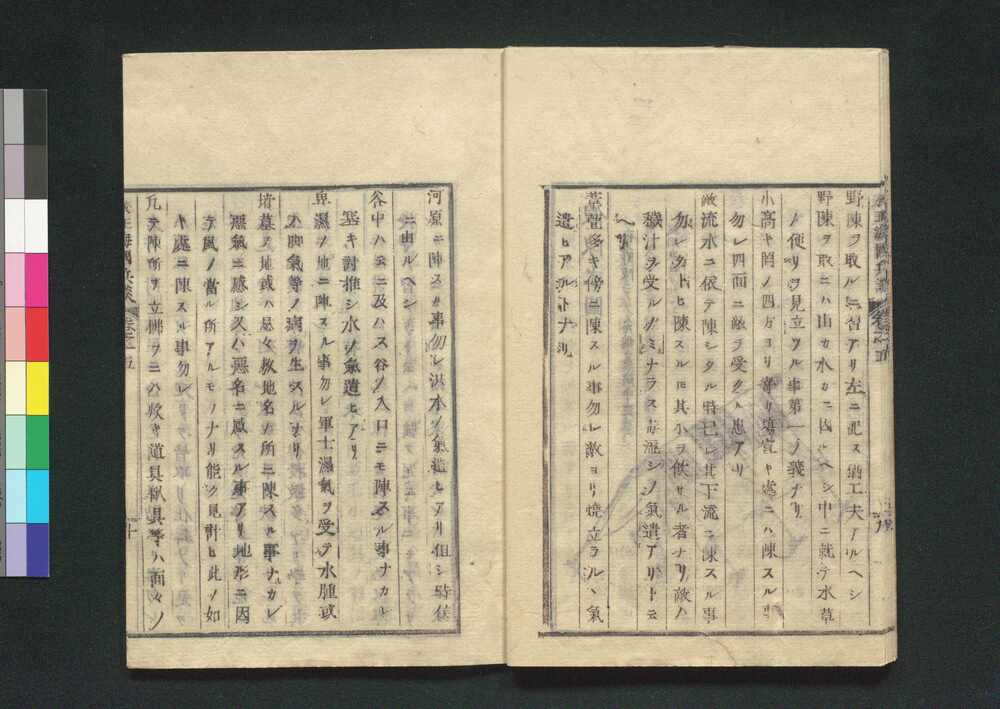 野陳ヲ取ルニ習アリ左ニ記ス猶工夫アルヘシ
野陳ヲ取ニハ山カ水カニ因ルヘシ中ニ就テ水草
ノ便リヲ見立ツル事第一ノ義ナリ
小高キ岡ノ四方ヨリ
処ニハ陳スル事
勿レ四面ニ敵ヲ受クル患アリ
敵流水ニ依テ陳シタル時己レ其下流ニ陳スル事
勿レタトヒ陳スルトモ其水ヲ飲サル者ナリ敵ハ
穢汁ヲ受ルノミナラス毒流シノ氣遣アリト云
ヘリ
葦萱多キ傍ニ陳スル事勿レ敵ヨリ焼立ラルヽ氣
遣ヒアルトナリ
河原ニ陳スル事勿レ洪水ノ氣遣ヒアリ但シ時候
ニ由ルヘシ
谷中ハ云ニ及ハス谷ノ入口ニモ陳スル事ナカレ
塞キ討推シ水ノ氣遣ヒアリ
卑濕ノ地ニ陳スル事勿レ軍士濕氣ヲ受テ水腫或
ハ脚氣等ノ病ヲ生スルナリ
墳墓ノ地或ハ忌々敷地名ノ所ニ陳スル事ナカレ
悪氣ニ感シ又ハ悪名ニ感スル事アリ地形ニ因
テ風ノ當ル所アルモノナリ能ク見計ヒ此ノ如
キ處ニ陳スル事勿レ
凡テ陳所ヲ立拂フニハ敷キ道具臥具等ハ面々ノ